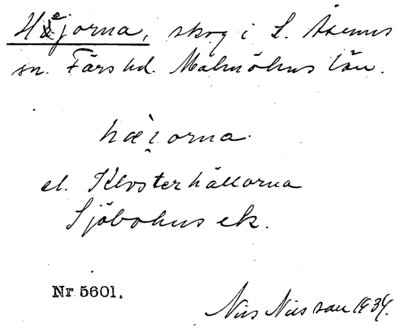 Hejorna, skog i S. Åsums
sn. Färs hd. Malmöhus län.
hæi̯orna.
el. Klosterhällorna
Sjöbohus ek.
Nr 5601.
Nils Nilsson 1934.